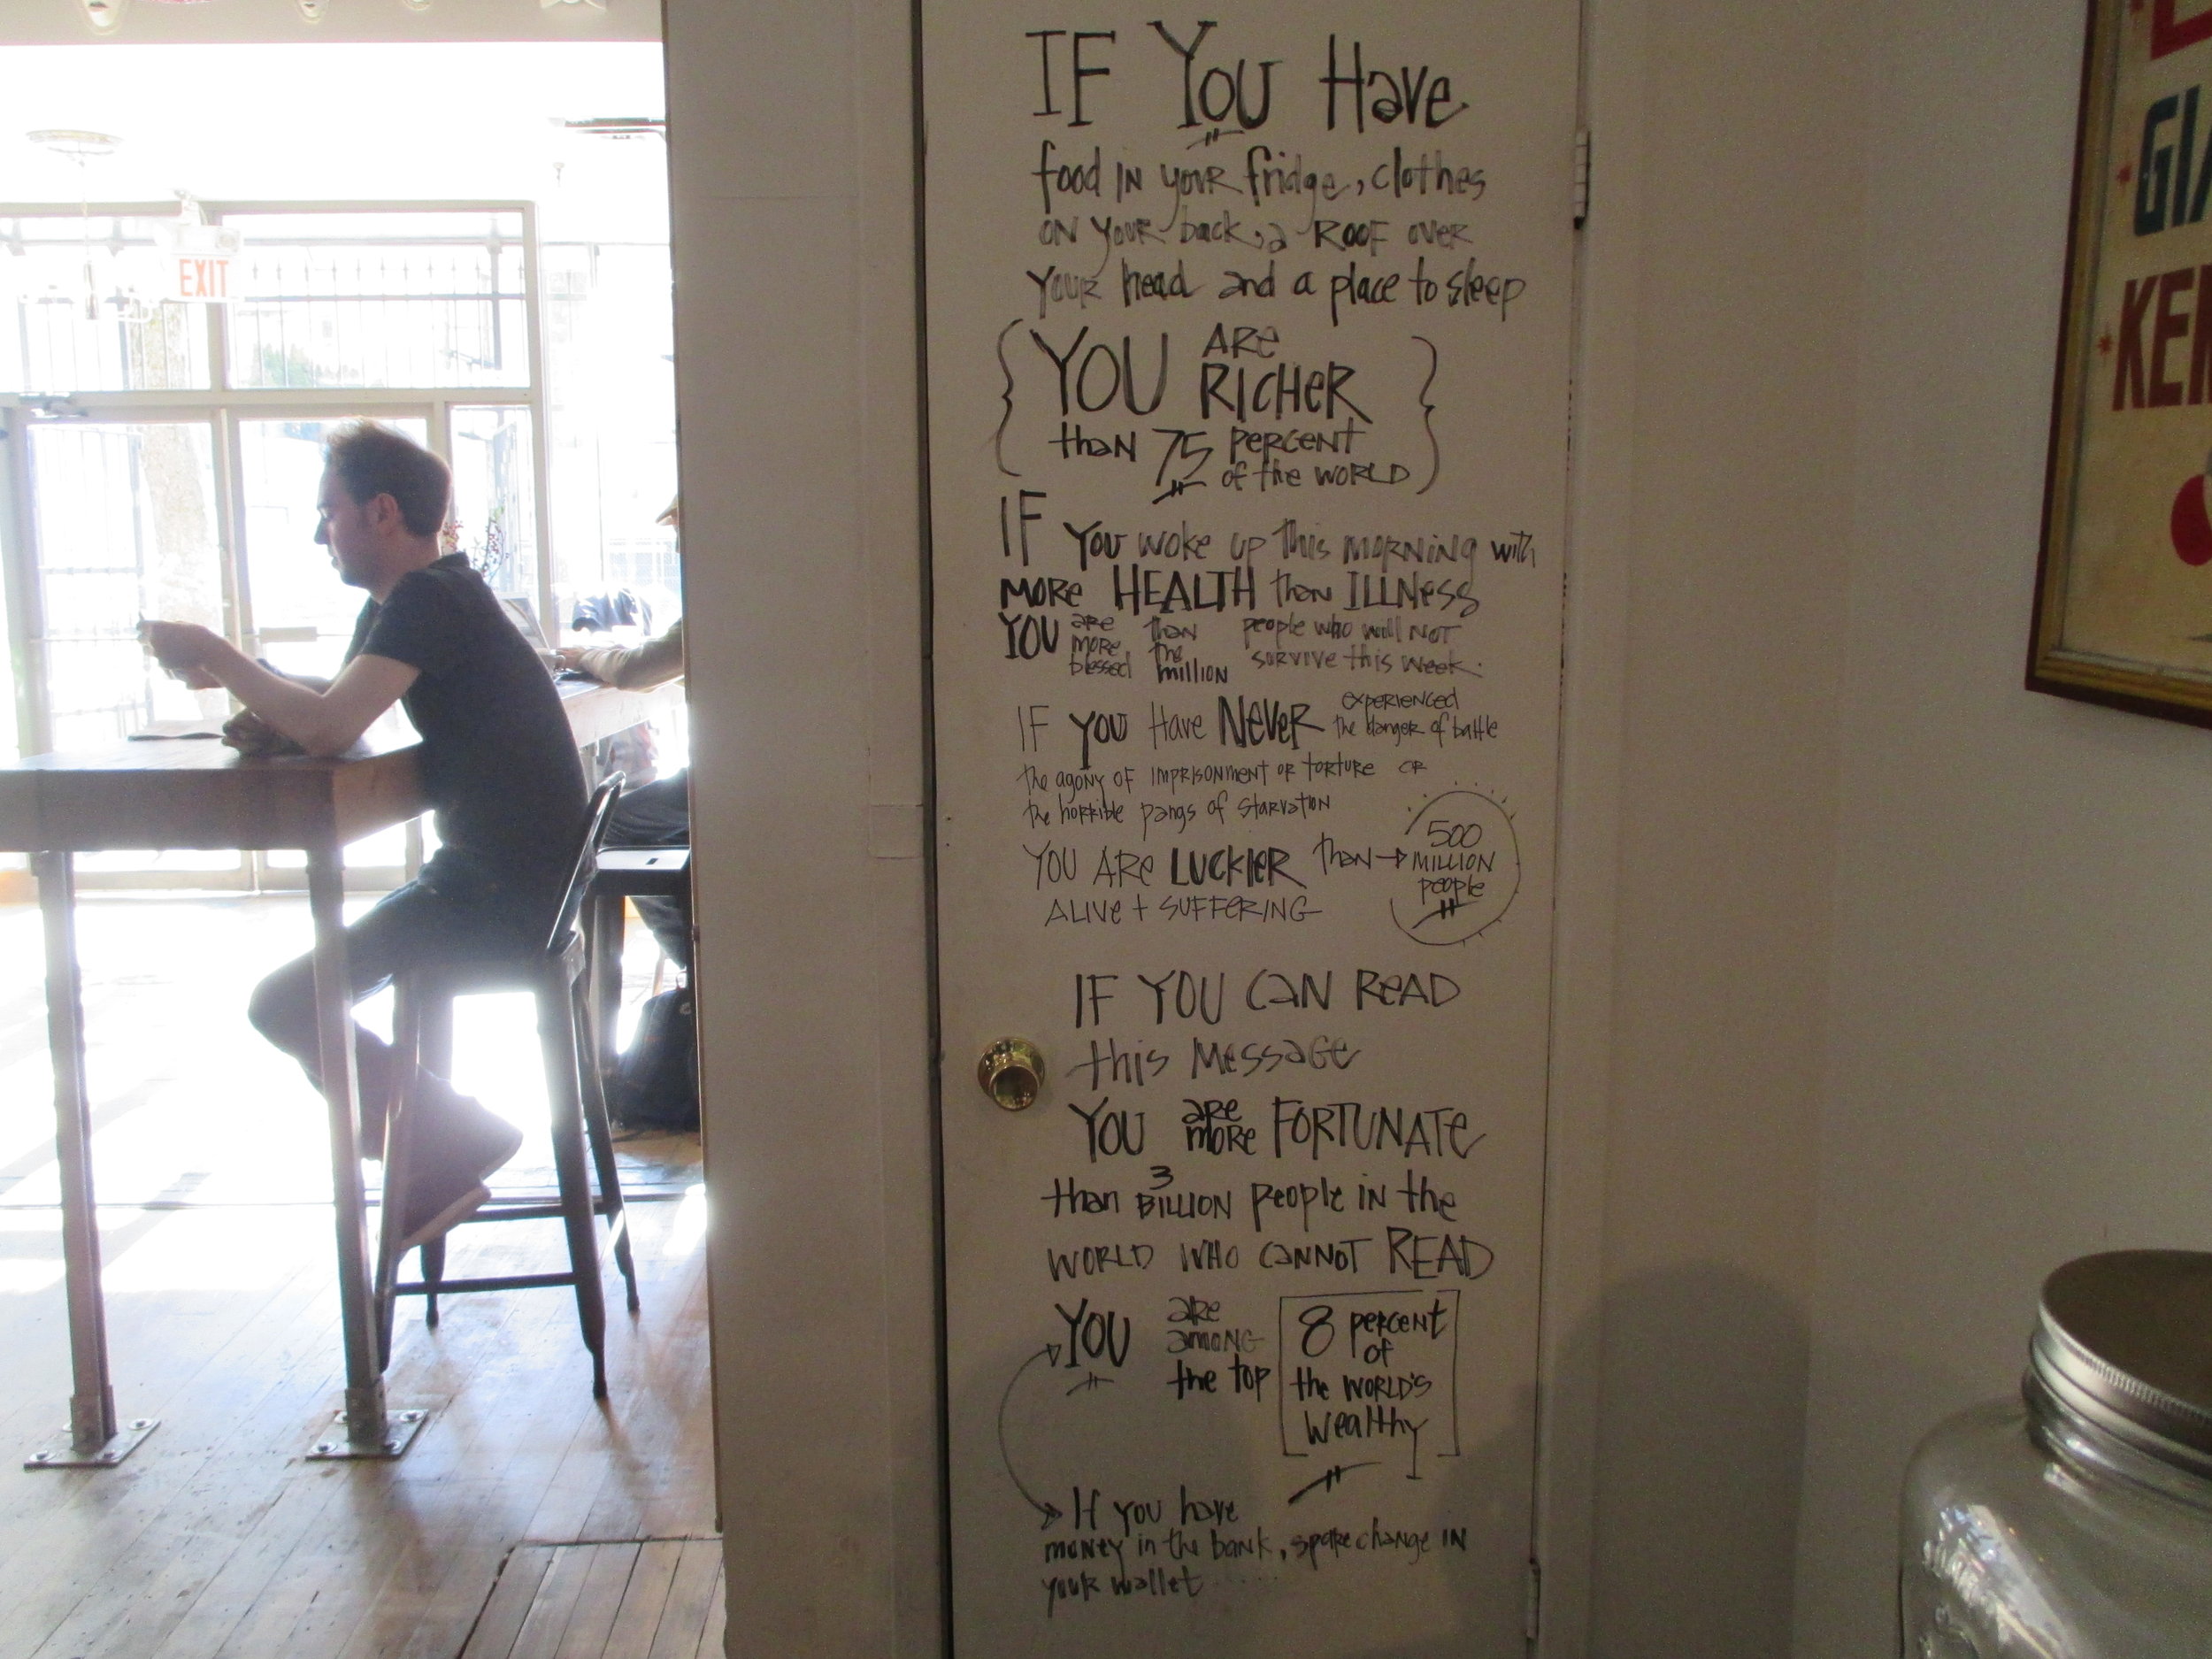 EXIT
IF YOU Have
food IN YOUR fridge, clothes
ON YOUR back, a ROOF OVER
YOUR head and a place to sleep
YOU ARe RICHeR
thaN 75 PeRCeNT of the WORLD
IF YOU WOKe UP This MORNiNg with
MORe HEALTH thaN ILLNess
YOU are more blessed than the million people who will NOT survive this week.
IF YOU Have NeveR experienced the danger of battle
the agony OF IMPRISONment OR TORTURE OR
the horrible pangs of StarvaTION
YOU ARe LUCKIeR Than 500 MILLION people
ALIVe + SUFFeRING
IF YOU CaN ReAD
this Message
YOU are more FORTUNATe
than 3 BILLION people in the
WORLD WHO CaNNOT READ
YOU are among the top 8 percent of the WORLD'S wealthy
If you have
money in the bank, spare change IN
your wallet.....
GIA
KEN